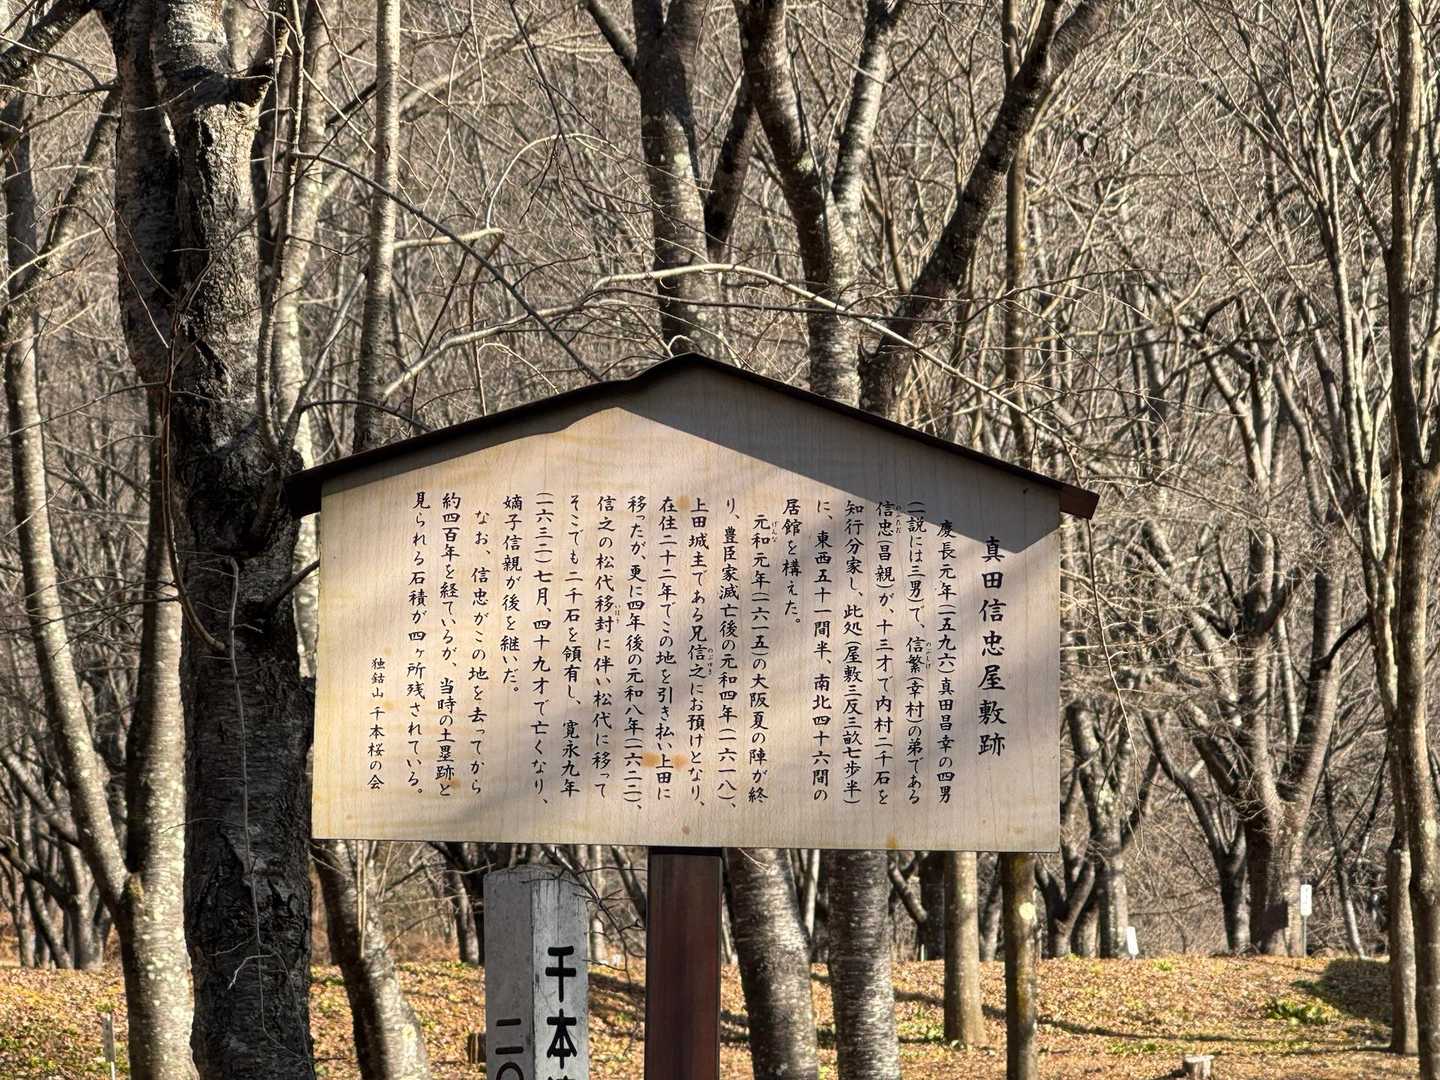 真田信忠屋敷跡
慶長元年(一五九六)真田昌幸の四男
(一説には三男)で、信繁(幸村)の弟である
信忠(昌親)が、十三才で内村二千石を
知行分家し、此処(屋敷三反三畝七歩半)
に、東西五十一間半、南北四十六間の
居館を構えた。
元和元年(一六一五)の大阪夏の陣が終
り、豊臣家滅亡後の元和四年(一六一八)、
上田城主である兄信之にお預けとなり、
在住二十二年でこの地を引き払い上田に
移ったが、更に四年後の元和八年(一六二二)、
信之の松代移封に伴い松代に移って
そこでも二千石を領有し、寛永九年
(一六三二)七月、四十九才で亡くなり、
嫡子信親が後を継いだ。
なお、信忠がこの地を去ってから
約四百年を経ているが、当時の土塁跡と
見られる石積が四ヶ所残されている。
独鈷山 千本桜の会
千本
二〇